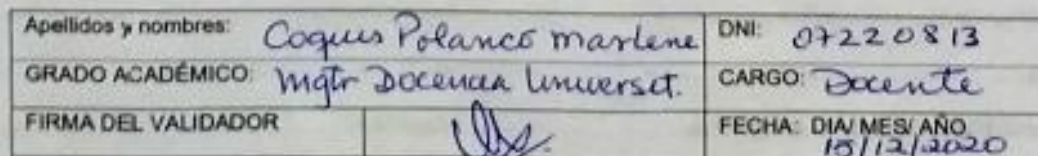 Apellidos y nombres: Coquis Polanco marlene DNI: 07220813
GRADO ACADÉMICO: Mgtr Docencia Universit. CARGO: Docente
FIRMA DEL VALIDADOR FECHA: DIA/ MES/ AÑO
15/12/2020